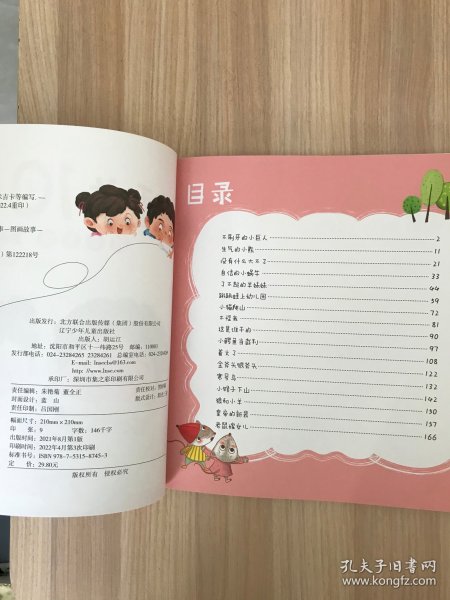 米吉卡等编写. 一
022.4重印）
事—图画故事—
）第122218号
出版发行：北方联合出版传媒（集团）股份有限公司
辽宁少年儿童出版社
出版人：胡运江
地址：沈阳市和平区十一纬路25号 邮编：110003
发行部电话：024-23284265 23284261 总编室电话：024-
http://www.lnse.com
承印厂：深圳市集之彩印刷有限公司
责任编辑：朱艳菊 董全正
责任印制：吕国刚
幅面尺寸：210mm×210mm
印张：9 字数：146千字
出版时间：2021年8月第1版
印刷时间：2022年4月第3次印刷
标准书号：ISBN 978-7-5315-8745-3
定价：29.80元
版权所有 侵权必究
目录
不刷牙的小巨人 2
生气的小熊 11
没有什么大不了 21
自信的小蜗牛 33
了不起的羊妹妹 44
跳跳蛙上幼儿园 59
小猫爬山 72
不怪我 81
这是谁干的 90
小鳄鱼当裁判 97
着火了 107
金斧头银斧头 122
寒号鸟 133
小猴子下山 142
狼和小羊 150
皇帝的新装 157
老鼠嫁女儿 166
孔夫子旧书网
www.kongfz.com